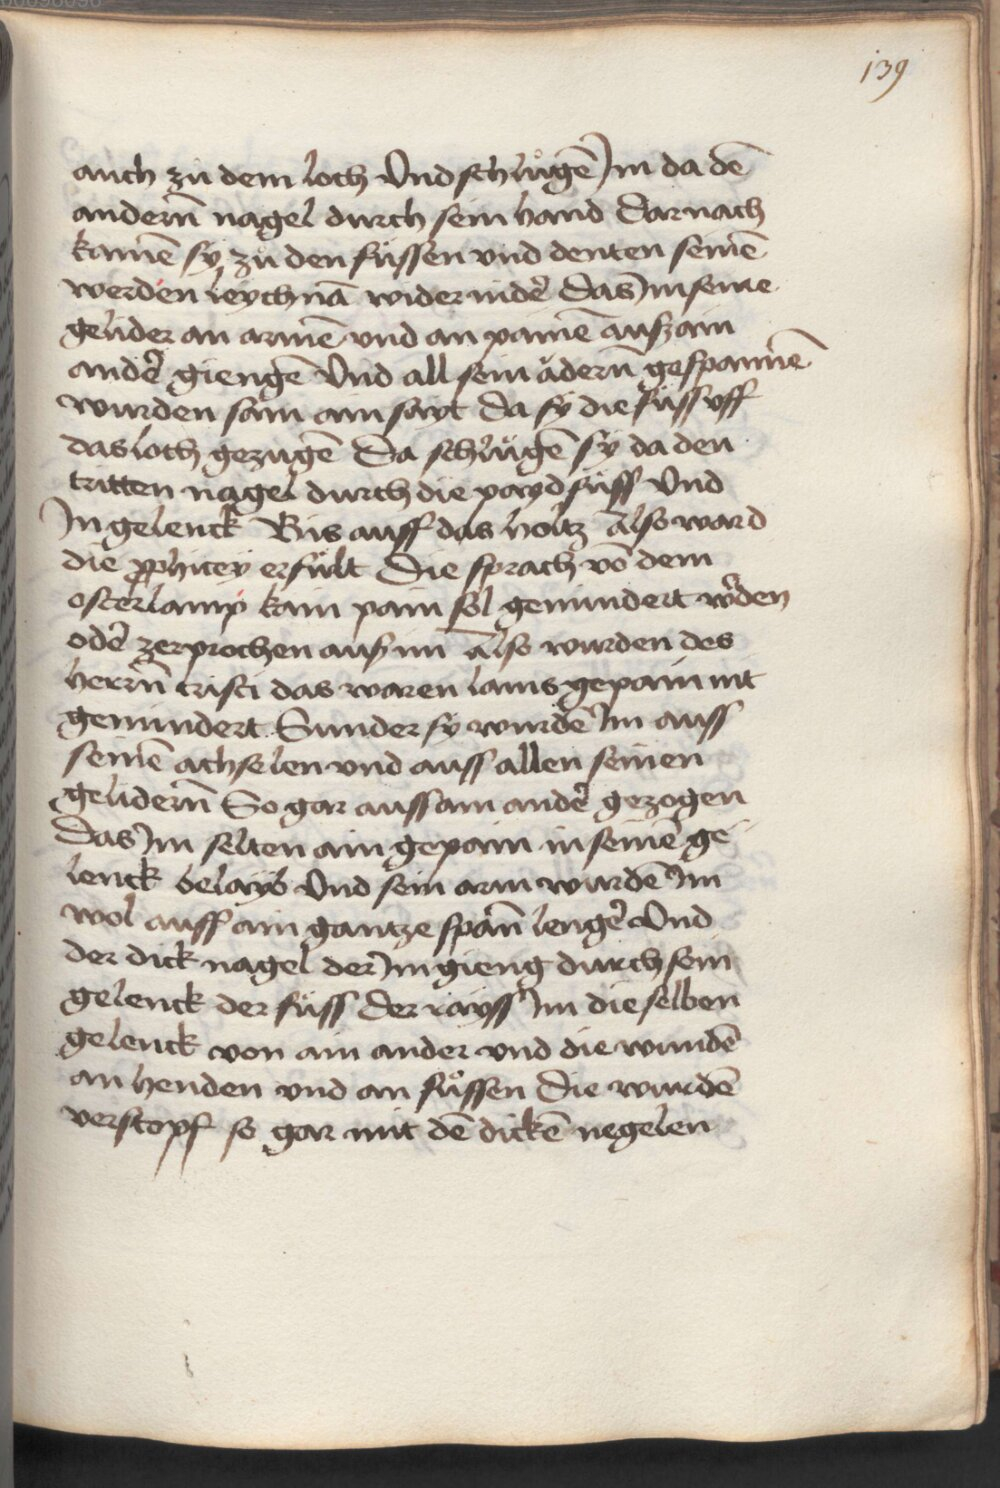 139
auch zu dem loch Vnd schlůgē Jm da dē
andern̄ nagel durch sein hand Darnach
kamē sy zů den fůssen vnd denten seinē
werden leychnā wider nidē Das Jm seine
gelider an armē vnd an painē ausz ain
andē giengē Vnd all sein ådern̄ gespannē
wurden sam ain sayt Da sy die fůss vff
das loch gezugē Da schlůgē sy da den
tritten nagel durch die payd fůss Vnd
Jn gelenck Bis auff das holtz Also ward
die ꝓphicey erfult Die sprach vō dem
osterlamp kain pain sol gemindert wʼden
odē zerprochen aus im Also wurden des
herrn̄ cristi das waren lams gepain nit
gemindert Sunder sy wurdē Jm auss
seinē achselen vnd auss allen seinen
gelidern̄ So gar auss ain andē gezogen
Das Jm selten ain gepain in seinē ge
lenck belayb Vnd sein arm wurdē Jm
wol auff ain gantze span̄ lengē Vnd
der dick nagel der Jm gieng durch sein
gelenck der fůss Der rayss Jm die selben
gelenck von ain ander vnd die wundē
an henden vnd an fůssen Die wurdē
verstopf so gar mit dē dickē negelen